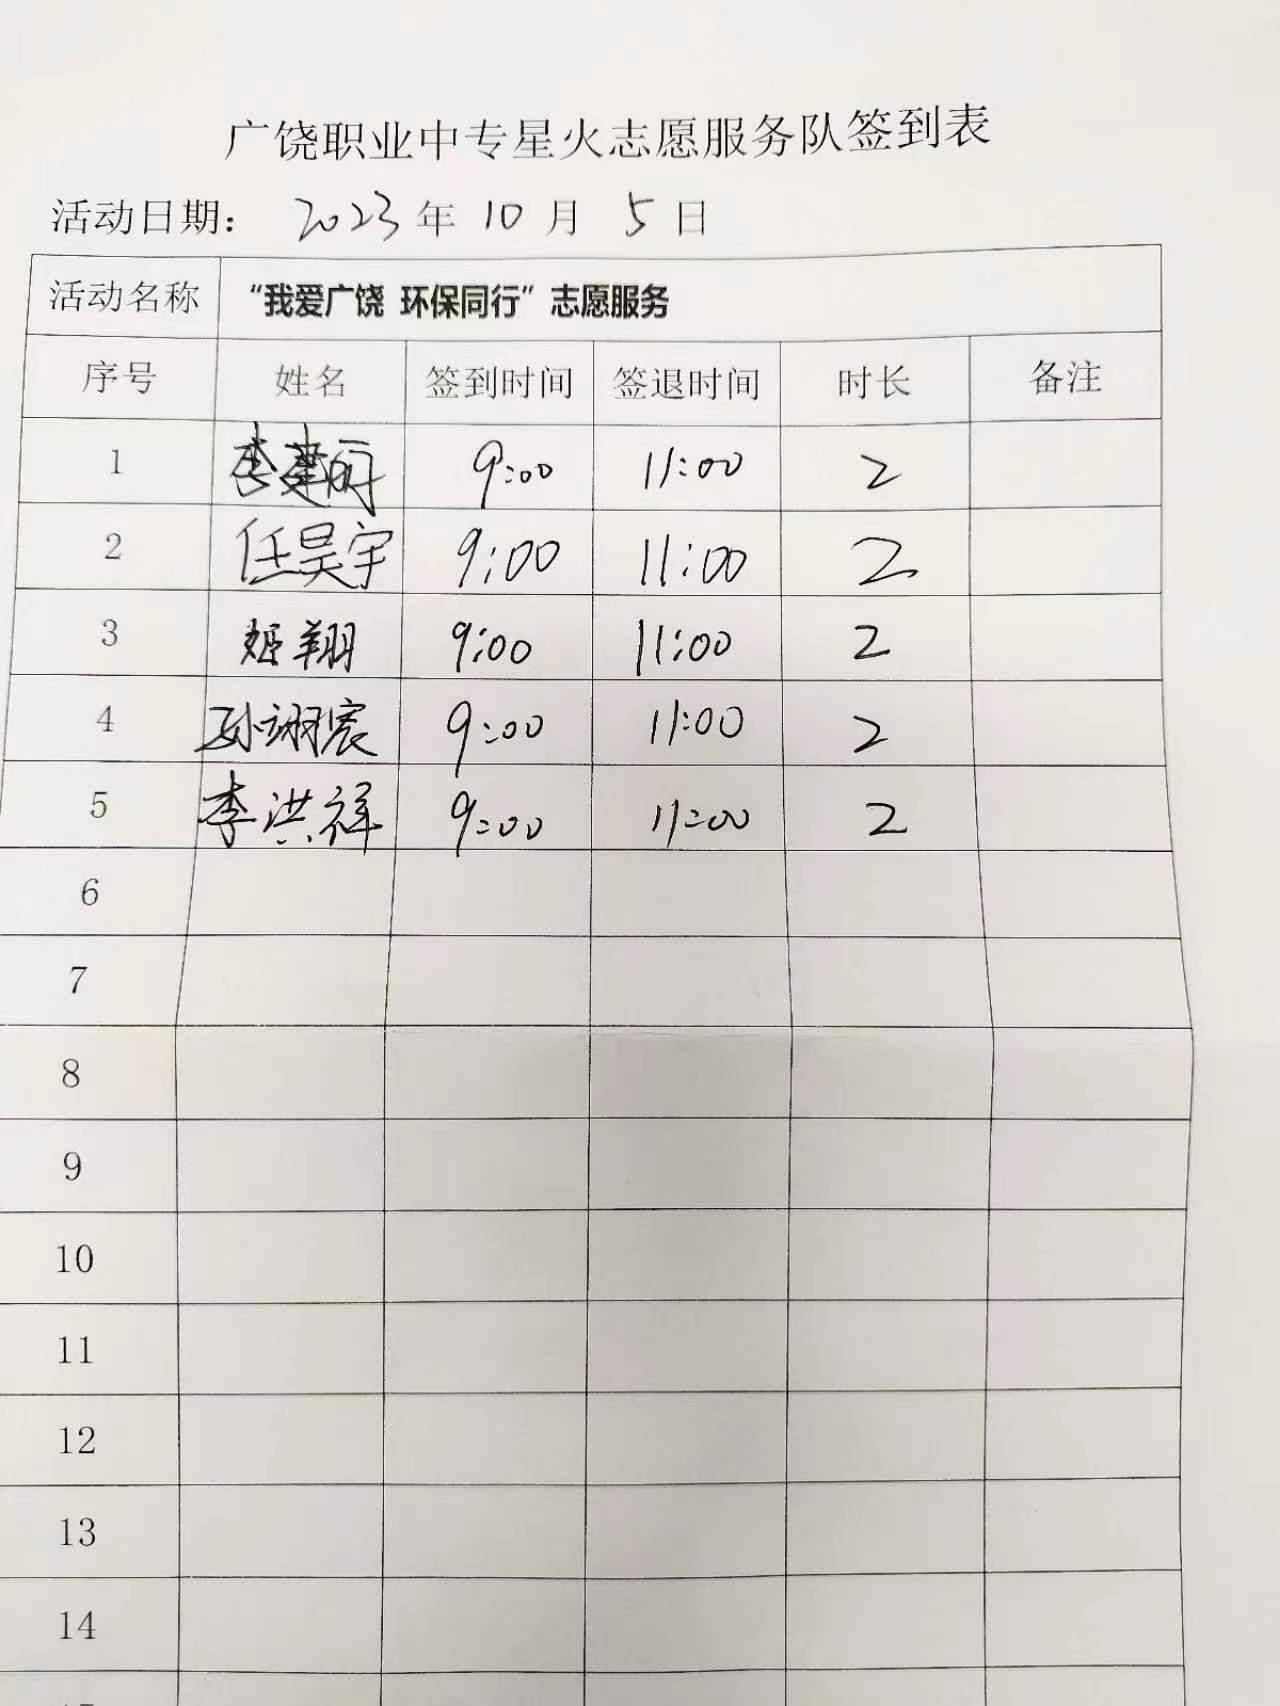 广饶职业中专星火志愿服务队签到表
活动日期： 2023 年 10 月 5 日
活动名称 “我爱广饶 环保同行”志愿服务
序号 姓名 签到时间 签退时间 时长 备注
1 李建丽 9:00 11:00 2
2 任昊宇 9:00 11:00 2
3 姬翔 9:00 11:00 2
4 孙翊宸 9:00 11:00 2
5 李洪祥 9:00 11:00 2
6
7
8
9
10
11
12
13
14